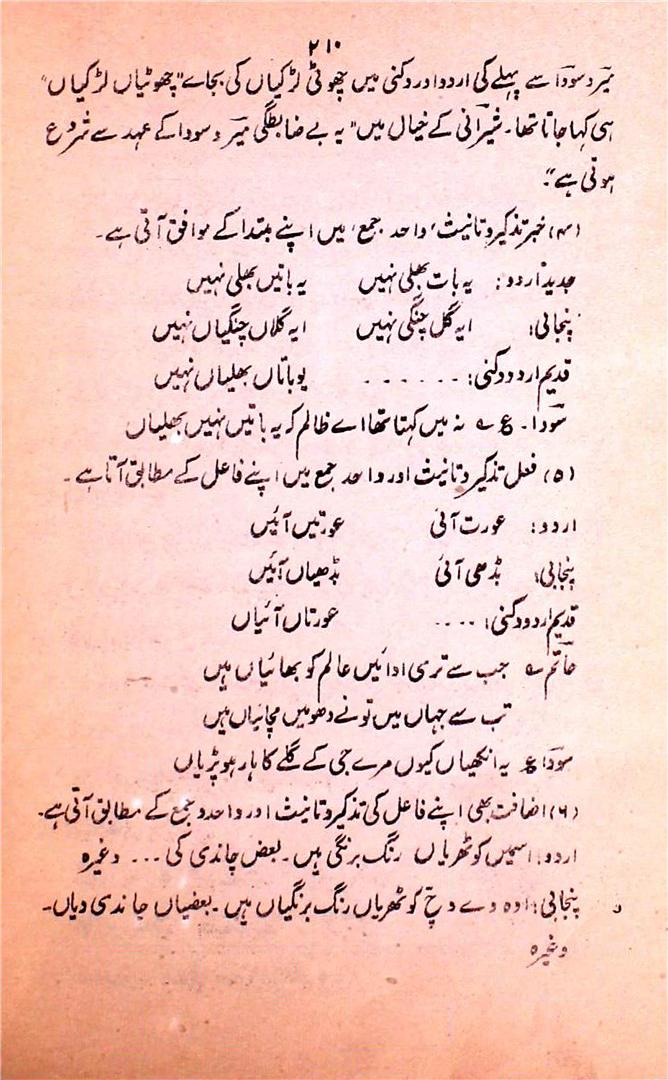 ۲۱۰
میر و سودا سے پہلے کی اردو اور دکنی میں چھوٹی لڑکیاں کی بجاے "چھوٹیاں لڑکیاں"
ہی کہا جاتا تھا۔ شیرانی کے خیال میں "یہ بے ضابطگی میر و سودا کے عہد سے شروع
ہوتی ہے"۔
(۴) خبر تذکیر و تانیث، واحد جمع، میں اپنے مبتدا کے موافق آتی ہے۔
جدید اردو: یہ بات بھلی نہیں یہ باتیں بھلی نہیں
پنجابی: ایہ گل چنگی نہیں ایہ گلاں چنگیاں نہیں
قدیم اردو دکنی: ...... یو باتاں بھلیاں نہیں
سودا۔ ع ؎ نہ میں کہتا تھا اے ظالم کہ یہ باتیں نہیں بھلیاں
(۵) فعل تذکیر و تانیث اور واحد جمع میں اپنے فاعل کے مطابق آتا ہے۔
اردو: عورت آئی عورتیں آئیں
پنجابی: بڈھی آئی بڈھیاں آئیں
قدیم اردو دکنی: .... عورتاں آئیاں
حاتم ؎ جب سے تری ادائیں عالم کو بھائیاں ہیں
تب سے جہاں میں تو نے دھومیں مچائیاں ہیں
سودا ع یہ انکھیاں کیوں مرے جی کے گلے کا ہار ہو پڑیاں
(۶) اضافت بھی اپنے فاعل کی تذکیر و تانیث اور واحد و جمع کے مطابق آتی ہے۔
اردو: اسمیں کوٹھریاں رنگ برنگی ہیں۔ بعض چاندی کی ... وغیرہ
پنجابی: اوہ دے وچ کوٹھریاں رنگ برنگیاں ہیں۔ بعضیاں چاندی دیاں۔
وغیرہ